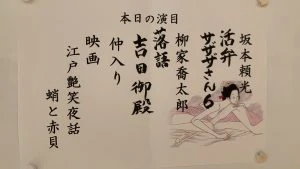 本日の演目
坂本頼光
活弁
サザザさん6
柳家喬太郎
落語
吉田御殿
仲入り
映画
江戸艶笑夜話
蛸と赤貝